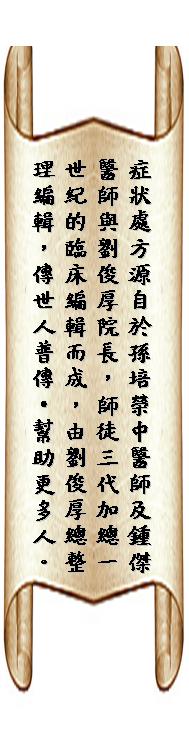 症狀處方源自於孫培榮中醫師及鍾傑
醫師與劉俊厚院長，師徒三代加總一
世紀的臨床編輯而成，由劉俊厚總整
理編輯，傳世人普傳。幫助更多人。